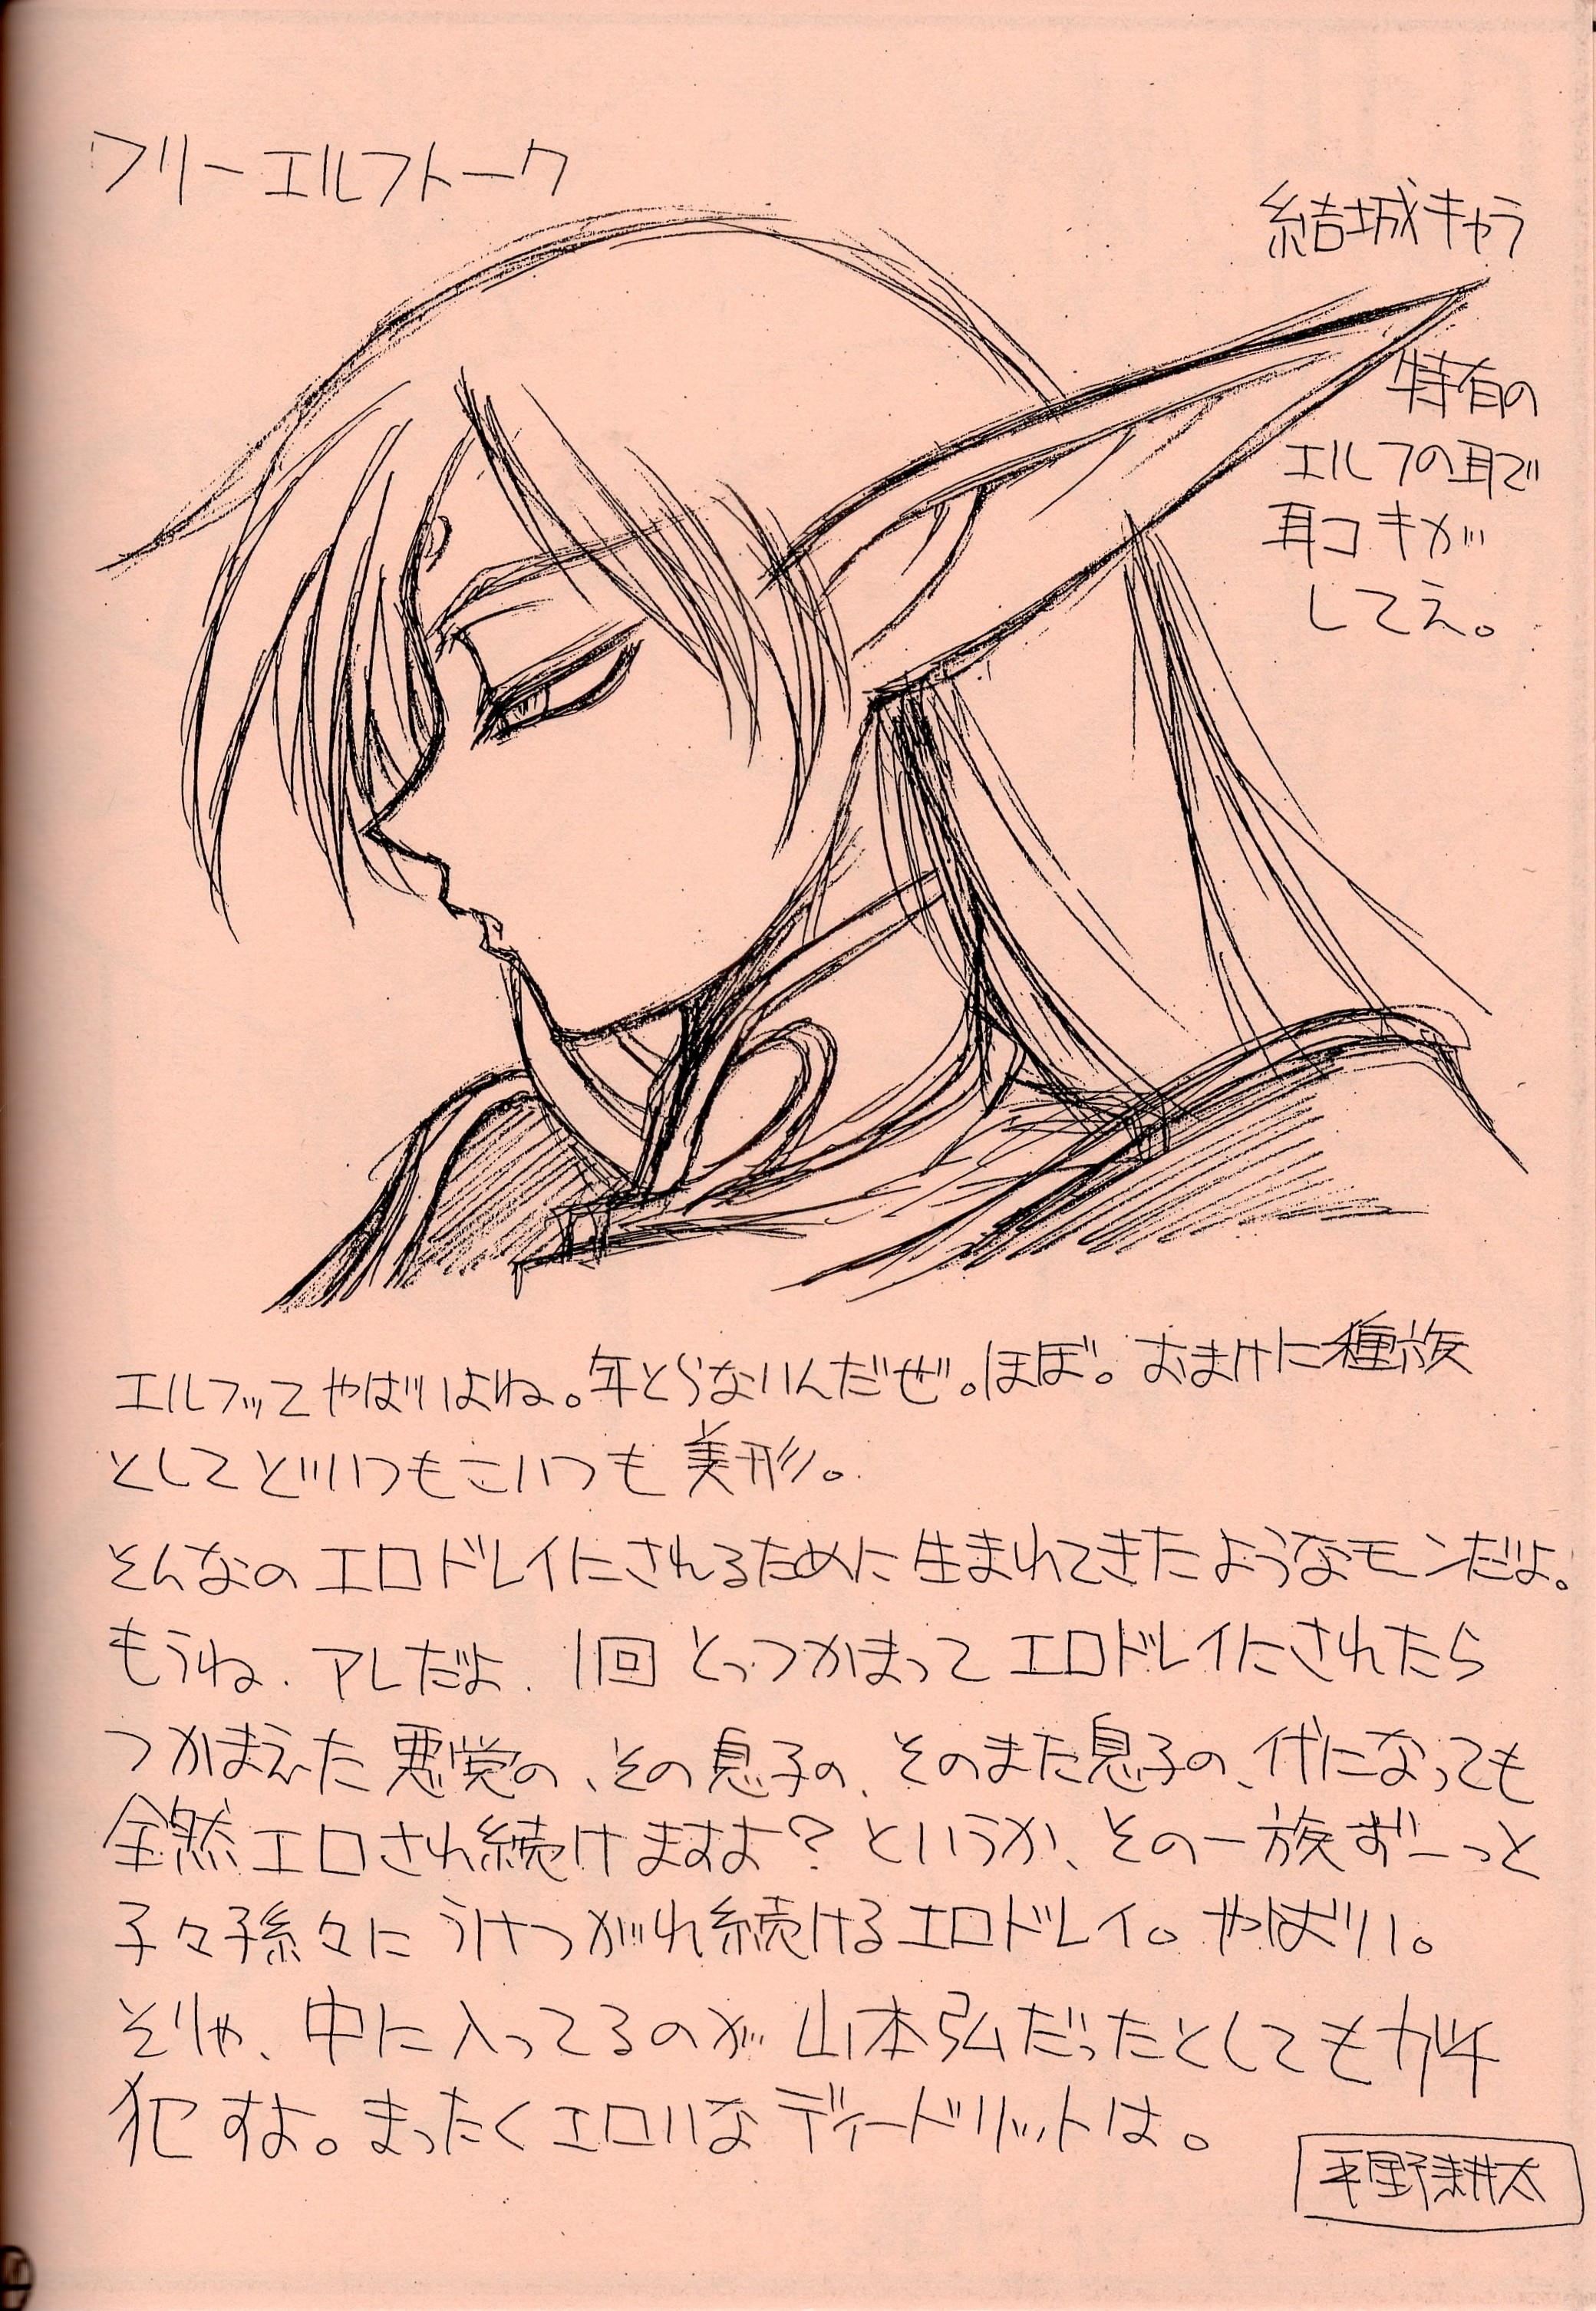 フリーエルフトーク
結城キャラ
特有の
エルフの耳で
耳コキが
してえ。
エルフッてやばいよね。年とらないんだぜ。ほぼ。おまけに種族
としてどいつもこいつも美形。
そんなのエロドレイにされるために生まれてきたようなモンだよ。
もうね、アレだよ、1回とっつかまってエロドレイにされたら
つかまえた悪党の、その息子の、そのまた息子の、代になっても
全然エロされ続けますよ?というか、その一族ずーっと
子々孫々にうけつがれ続けるエロドレイ。やばい。
そりゃ、中に入ってるのが山本弘だったとしてもガチ
犯すよ。まったくエロいなディードリットは。
平野耕太